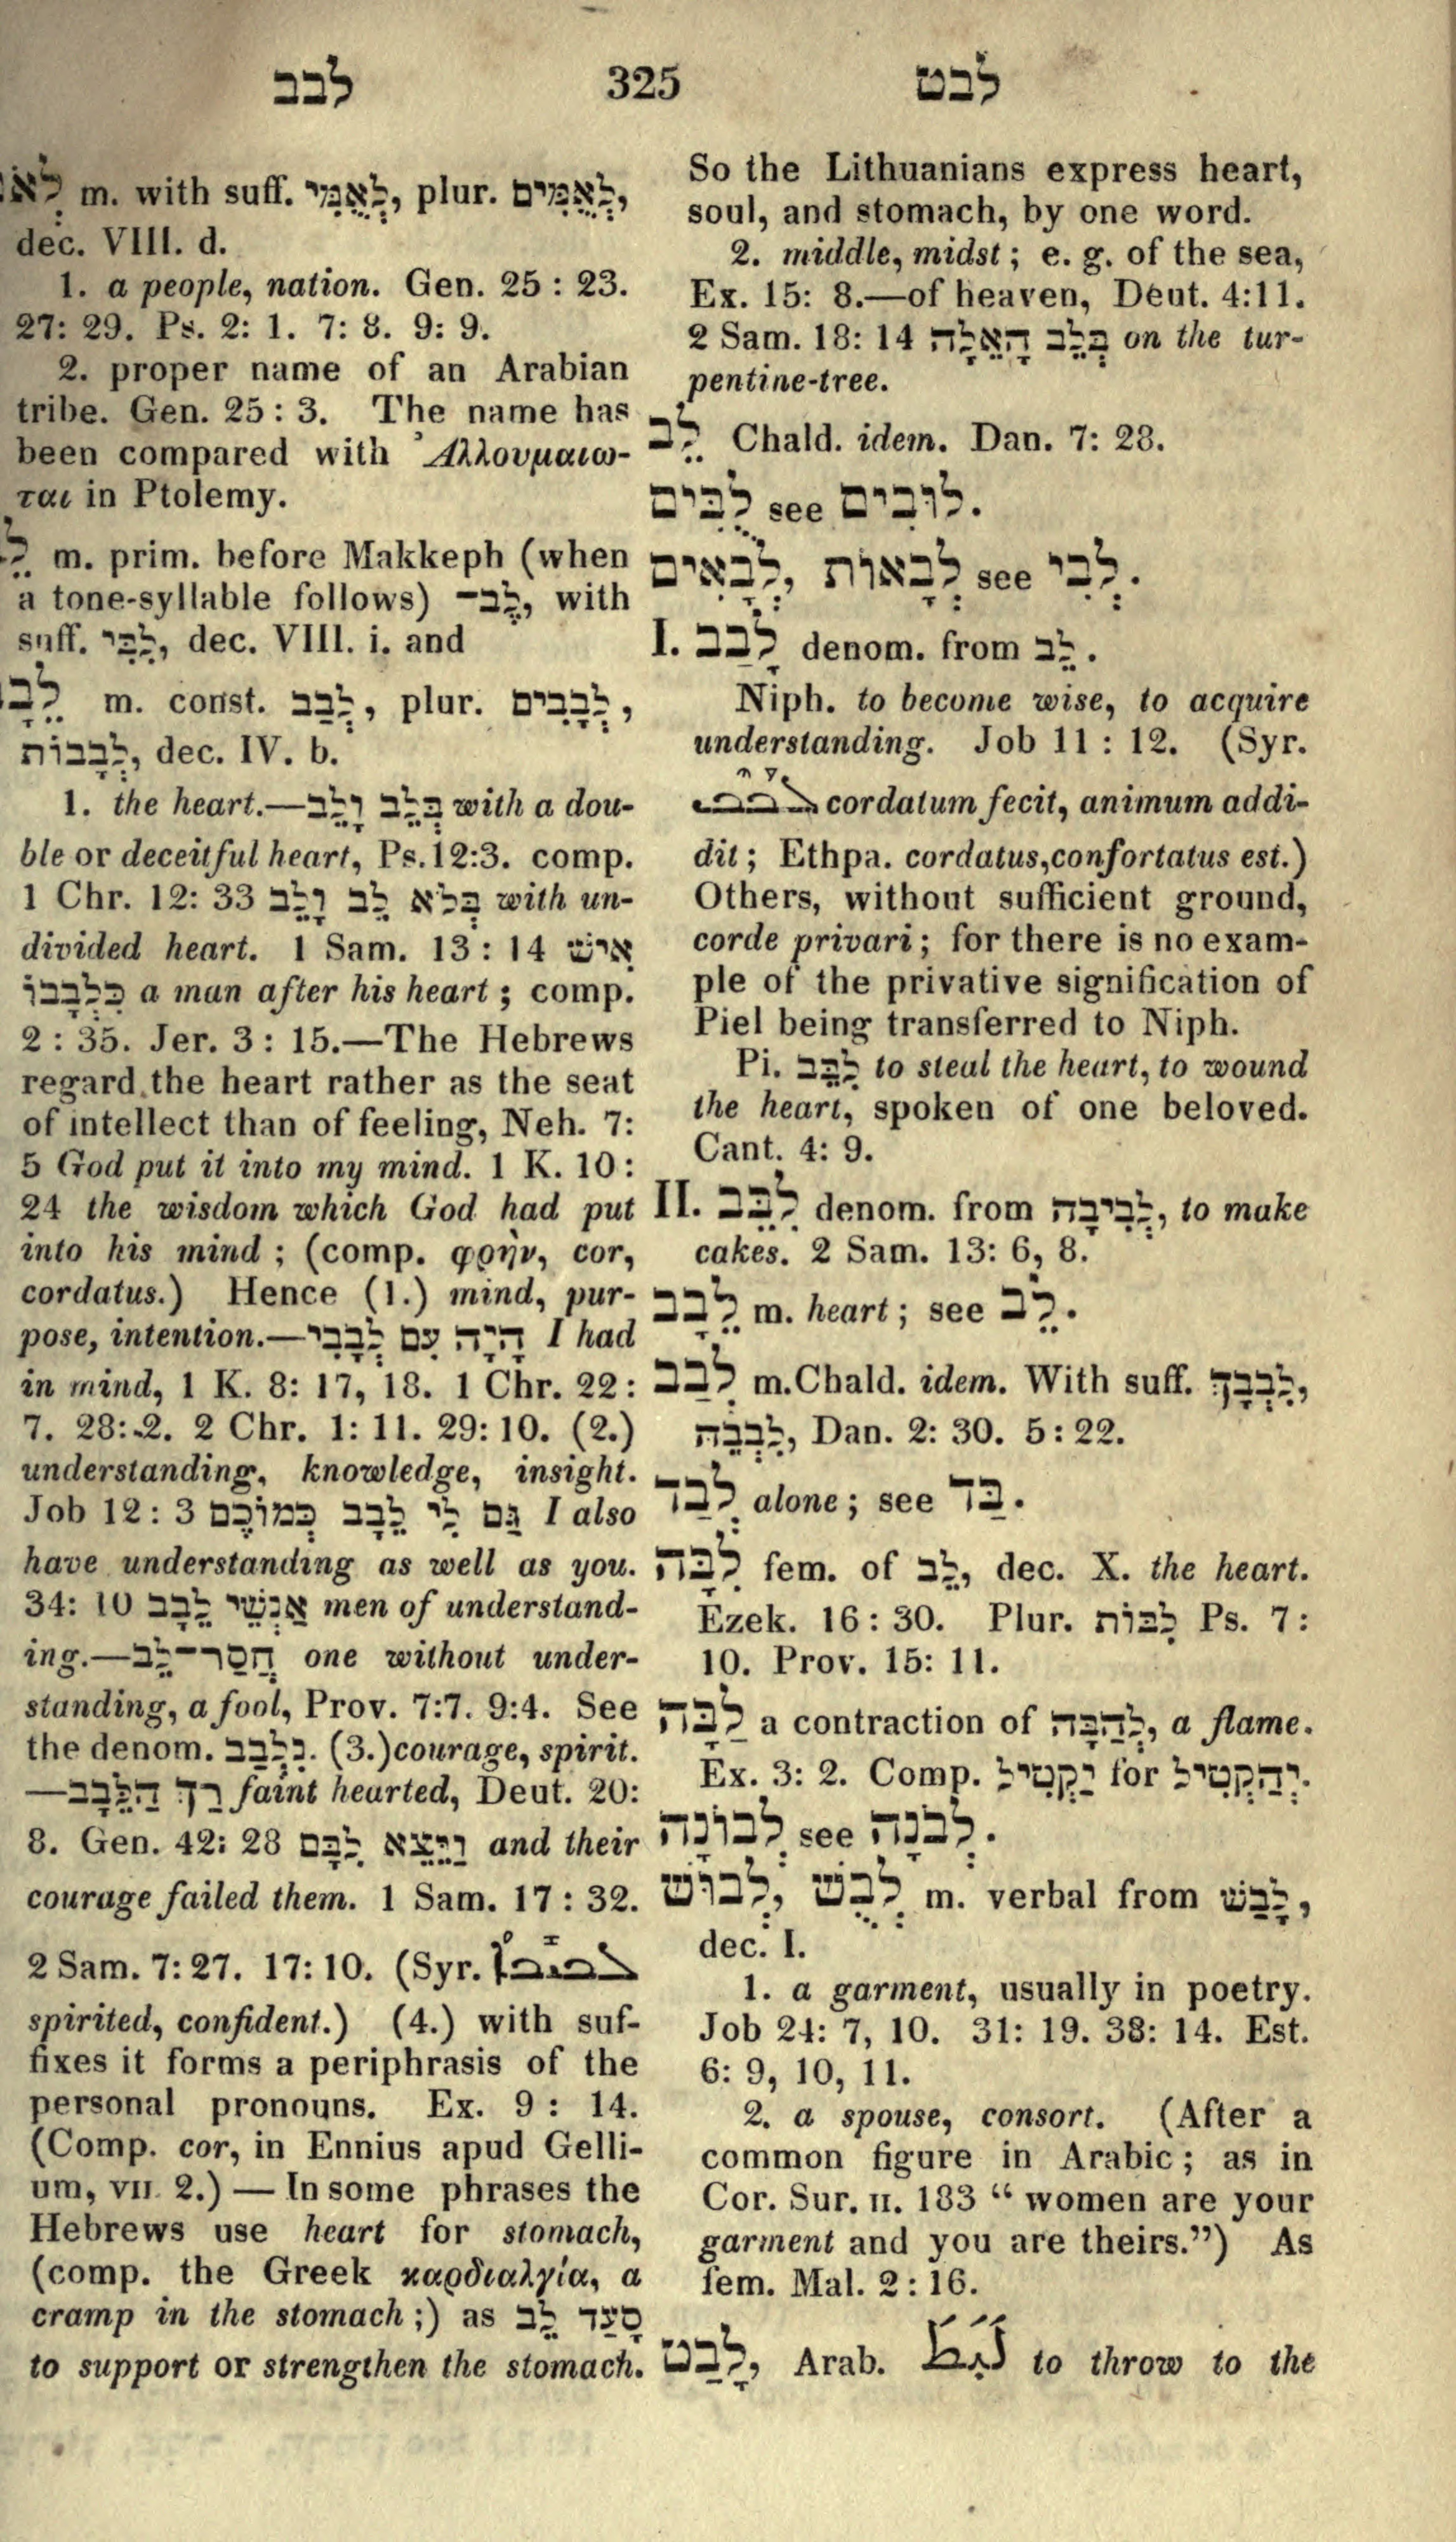 לבב 325 לבט
m. with suff. לְאֻמִּי, plur. לְאֻמִּים,
dec. VIII. d.
1. a people, nation. Gen. 25 : 23.
27: 29. Ps. 2: 1. 7: 8. 9: 9.
2. proper name of an Arabian
tribe. Gen. 25 : 3. The name has
been compared with Ἀλλουμαιω-
ται in Ptolemy.
m. prim. before Makkeph (when
a tone-syllable follows) לֶב־, with
suff. לִבִּי, dec. VIII. i. and
m. const. לְבַב, plur. לְבָבִים,
לְבָבוֹת, dec. IV. b.
1. the heart.—בְּלֵב וָלֵב with a dou-
ble or deceitful heart, Ps. 12:3. comp.
1 Chr. 12: 33 בְּלֹא לֵב וָלֵב with un-
divided heart. 1 Sam. 13 : 14 אִישׁ
כִּלְבָבוֹ a man after his heart ; comp.
2 : 35. Jer. 3 : 15.—The Hebrews
regard the heart rather as the seat
of intellect than of feeling, Neh. 7:
5 God put it into my mind. 1 K. 10 :
24 the wisdom which God had put
into his mind ; (comp. φρὴν, cor,
cordatus.) Hence (1.) mind, pur-
pose, intention.—הָיָה עִם לְבָבִי I had
in mind, 1 K. 8: 17, 18. 1 Chr. 22 :
7. 28: 2. 2 Chr. 1: 11. 29: 10. (2.)
understanding, knowledge, insight.
Job 12 : 3 גַּם לִי לֵבָב כְּמוֹכֶם I also
have understanding as well as you.
34: 10 אַנְשֵׁי לֵבָב men of understand-
ing.—חֲסַר־לֵב one without under-
standing, a fool, Prov. 7:7. 9:4. See
the denom. נִלְבַב. (3.) courage, spirit.
—רַךְ הַלֵּבָב faint hearted, Deut. 20:
8. Gen. 42: 28 וַיֵּצֵא לִבָּם and their
courage failed them. 1 Sam. 17 : 32.
2 Sam. 7: 27. 17: 10. (Syr.
spirited, confident.) (4.) with suf-
fixes it forms a periphrasis of the
personal pronouns. Ex. 9 : 14.
(Comp. cor, in Ennius apud Gelli-
um, VII. 2.) — In some phrases the
Hebrews use heart for stomach,
(comp. the Greek καρδιαλγία, a
cramp in the stomach ;) as סָעַד לֵב
to support or strengthen the stomach.
So the Lithuanians express heart,
soul, and stomach, by one word.
2. middle, midst ; e. g. of the sea,
Ex. 15: 8.—of heaven, Deut. 4:11.
2 Sam. 18: 14 בְּלֵב הָאֵלָה on the tur-
pentine-tree.
לֵב Chald. idem. Dan. 7: 28.
לֻבִּים see לוּבִים.
לְבָאִים, לְבָאוֹת see לְבִי.
I. לָבַב denom. from לֵב.
Niph. to become wise, to acquire
understanding. Job 11 : 12. (Syr.
cordatum fecit, animum addi-
dit ; Ethpa. cordatus, confortatus est.)
Others, without sufficient ground,
corde privari ; for there is no exam-
ple of the privative signification of
Piel being transferred to Niph.
Pi. לִבֵּב to steal the heart, to wound
the heart, spoken of one beloved.
Cant. 4: 9.
II. לִבֵּב denom. from לְבִיבָה, to make
cakes. 2 Sam. 13: 6, 8.
לֵבָב m. heart ; see לֵב.
לְבַב m. Chald. idem. With suff. לִבְבָךְ,
לִבְבֵהּ, Dan. 2: 30. 5 : 22.
לְבַד alone ; see בַּד.
לִבָּה fem. of לֵב, dec. X. the heart.
Ezek. 16 : 30. Plur. לִבּוֹת Ps. 7 :
10. Prov. 15: 11.
לַבָּה a contraction of לְהַבָּה, a flame.
Ex. 3: 2. Comp. יַקְטִיל for יְהַקְטִיל.
לְבוֹנָה see לְבֹנָה.
לְבוּשׁ, לְבֻשׁ m. verbal from לָבַשׁ,
dec. I.
1. a garment, usually in poetry.
Job 24: 7, 10. 31: 19. 38: 14. Est.
6: 9, 10, 11.
2. a spouse, consort. (After a
common figure in Arabic ; as in
Cor. Sur. II. 183 “ women are your
garment and you are theirs.”) As
fem. Mal. 2 : 16.
לָבַט, Arab. لَبَطَ to throw to the